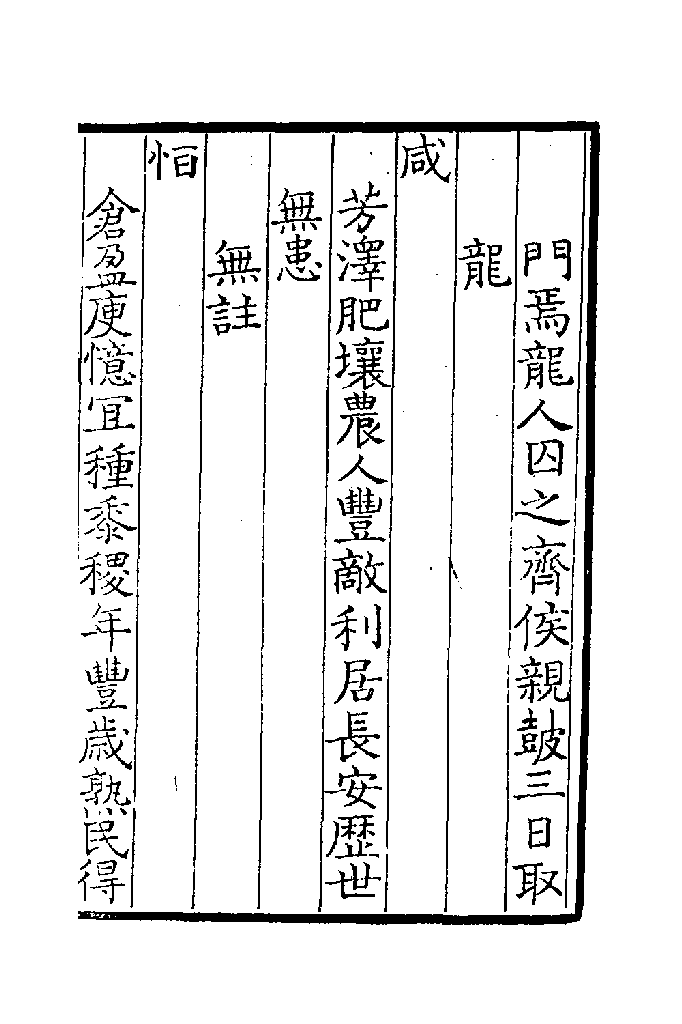 門焉龍人囚之齊侯親皷三日取
龍
咸
芳澤肥壤農人豐敵利居長安歴世
無患
無註
恒
倉盈庾憶冝種黍稷年豐歳熟民得